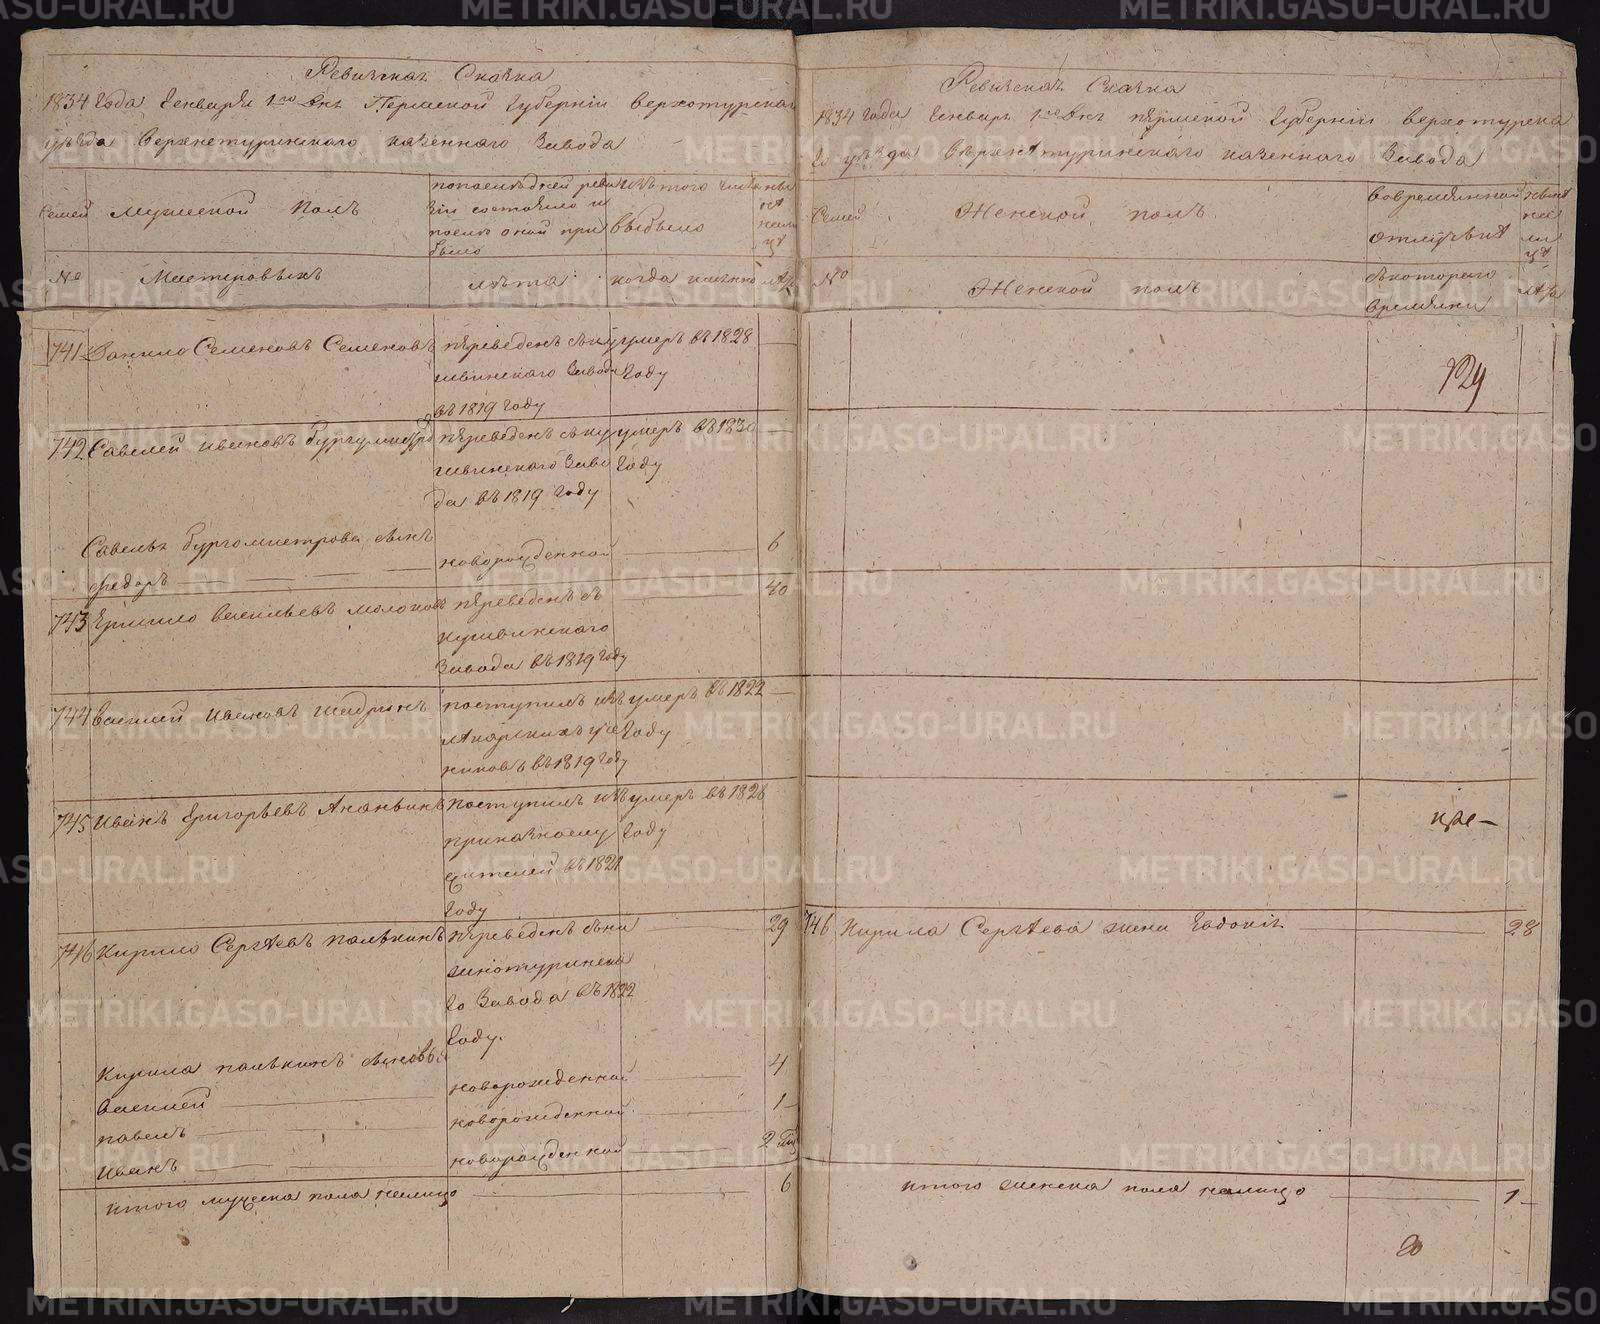 Ревижская Сказка
1834 Года Генваря 1го дня Пермской Губернiи верхотурскаго
уѣзда Верхнетуринскаго казеннаго Завода
Семей
Мужеской Полъ
попослѣдней реви
зiи состояло и
послѣ оной при
было
изъ того числа
выбыло
ны
нѣ
нали
цѣ
№
Мастеровыхъ
лѣта
когда имянно
лѣта
741 Данило Семеновъ Семеновъ
переведенъ съ ку
швинскаго Завода
въ 1819 году
умеръ въ 1828
Году
742 Савелей Ивановъ бургумистро
переведенъ съ ку
швинскаго Заво
да въ 1819 году
умеръ въ 1830
Году
Савелья бургомистрова сынъ
федоръ
новорожденной
6
743 Ермило васильевъ молоковъ
переведенъ съ
кушвинскаго
Завода въ 1819 году
40
744 василей Ивановъ шадринъ
поступилъ изъ
лѣкарскихъ уче
никовъ въ 1819 году
умеръ въ 1822
Году
745 Иванъ Григорьевъ Ананьинъ
поступилъ изъ
въ 1821
году
умеръ въ 1826
Году
746 Кирило Сергѣевъ пальвинъ
переведенъ съ ни
жнетуринска
го Завода въ 1822
Году.
29
Кирила сыновья
василей
новорожденной
4
павелъ
новорожденной
1
Иванъ
новорожденной
2
итого мужеска пола налицо
6
Ревижская Сказка
1834 года Генваря 1го дня пермской Губернiи верхотурска
го уѣзда верхнетуринскаго казеннаго Завода
Семей
Женской полъ
вовременной
отлучкѣ
нынѣ
нали
цѣ
№
Женской полъ
съкотораго
времяни
лѣта
129
746 Кирила Сергѣева жена Евдокiя
28
итого женска пола налицо
1
METRIKI.GASO-URAL.RU